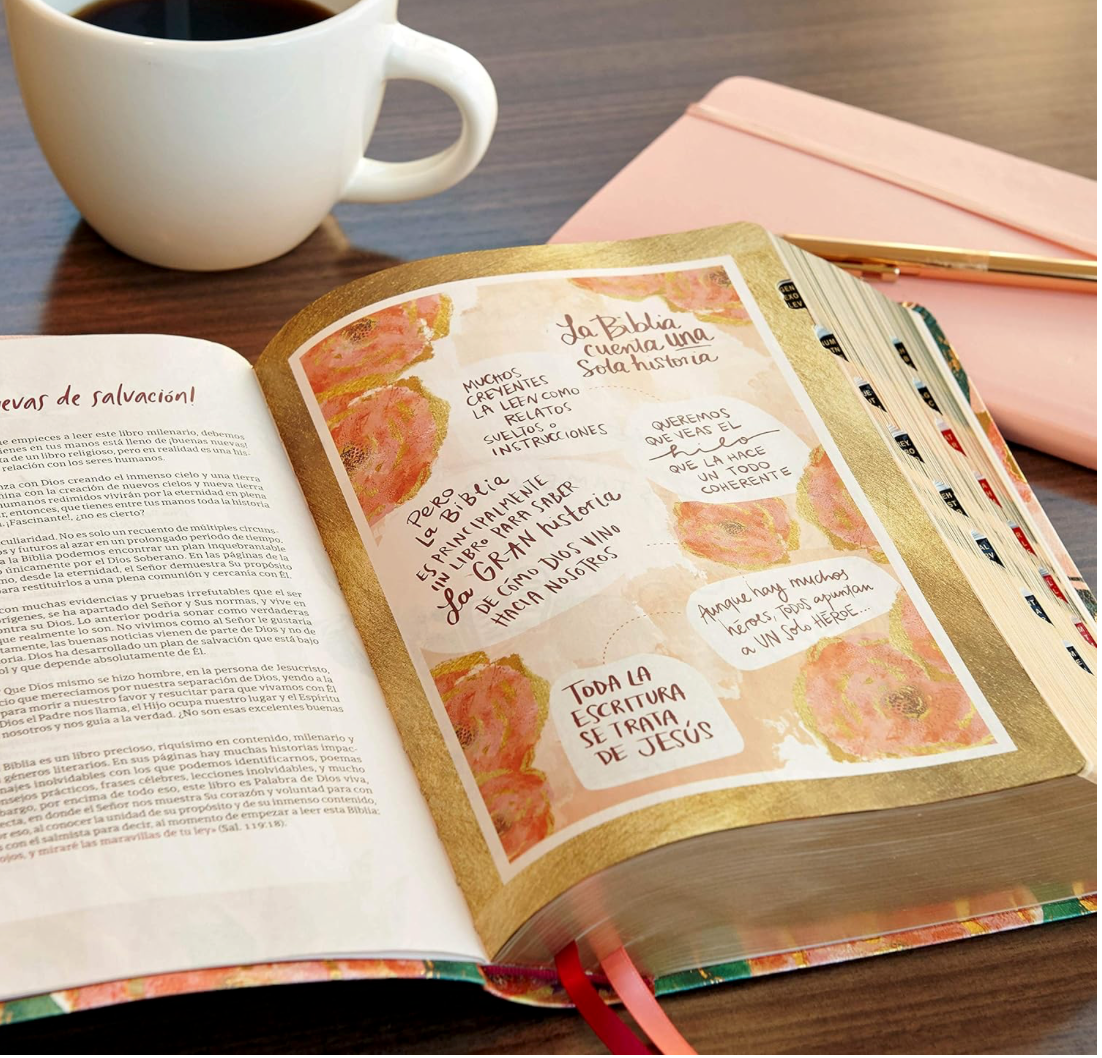 evas de salvación!
e empieces a leer este libro milenario, debemos
ienes en tus manos está lleno de ¡buenas nuevas!
ta de un libro religioso, pero en realidad es una his-
relación con los seres humanos.
nza con Dios creando el inmenso cielo y una tierra
mina con la creación de nuevos cielos y nueva tierra
humanos redimidos vivirán por la eternidad en plena
r, entonces, que tienes entre tus manos toda la historia
. ¡Fascinante!, ¿no es cierto?
culiaridad. No es solo un recuento de múltiples circuns-
s y futuros al azar en un prolongado periodo de tiempo.
a la Biblia podemos encontrar un plan inquebrantable
únicamente por el Dios Soberano. En las páginas de la
mo, desde la eternidad, el Señor demuestra Su propósito
para restituirlos a una plena comunión y cercanía con Él.
con muchas evidencias y pruebas irrefutables que el ser
orígenes, se ha apartado del Señor y Sus normas, y vive en
ontra su Dios. Lo anterior podría sonar como verdaderas
que realmente lo son. No vivimos como al Señor le gustaría
tamente, las buenas noticias vienen de parte de Dios y no de
toria. Dios ha desarrollado un plan de salvación que está bajo
ol y que depende absolutamente de Él.
Que Dios mismo se hizo hombre, en la persona de Jesucristo,
cio que merecíamos por nuestra separación de Dios, yendo a la
para morir a nuestro favor y resucitar para que vivamos con Él
Dios el Padre nos llama, el Hijo ocupa nuestro lugar y el Espíritu
nosotros y nos guía a la verdad. ¿No son esas excelentes buenas
Biblia es un libro precioso, riquísimo en contenido, milenario y
géneros literarios. En sus páginas hay muchas historias impac-
najes inolvidables con los que podemos identificarnos, poemas
nsejos prácticos, frases célebres, lecciones inolvidables, y mucho
bargo, por encima de todo eso, este libro es Palabra de Dios viva,
ecta, en donde el Señor nos muestra Su corazón y voluntad para con
or eso, al conocer la unidad de su propósito y de su inmenso contenido,
s con el salmista para decir, al momento de empezar a leer esta Biblia:
ojos, y miraré las maravillas de tu ley» (Sal. 119:18).
La Biblia
cuenta una
Sola historia
MUCHOS
CREYENTES
LA LEEN COMO
RELATOS
SUELTOS o
INSTRUCCIONES
QUEREMOS
QUE VEAS EL
hilo
QUE LA HACE
UN TODO
COHERENTE
PERO
La Biblia
ES PRINCIPALMENTE
UN LIBRO PARA SABER
La GRAN historia
DE CÓMO DIOS VINO
HACIA NOSOTROS
Aunque hay muchos
héroes, TODOS apuntan
a UN Solo HÉROE...
TODA LA
ESCRITURA
SE TRATA
DE JESÚS
GEN
EXO
LEV